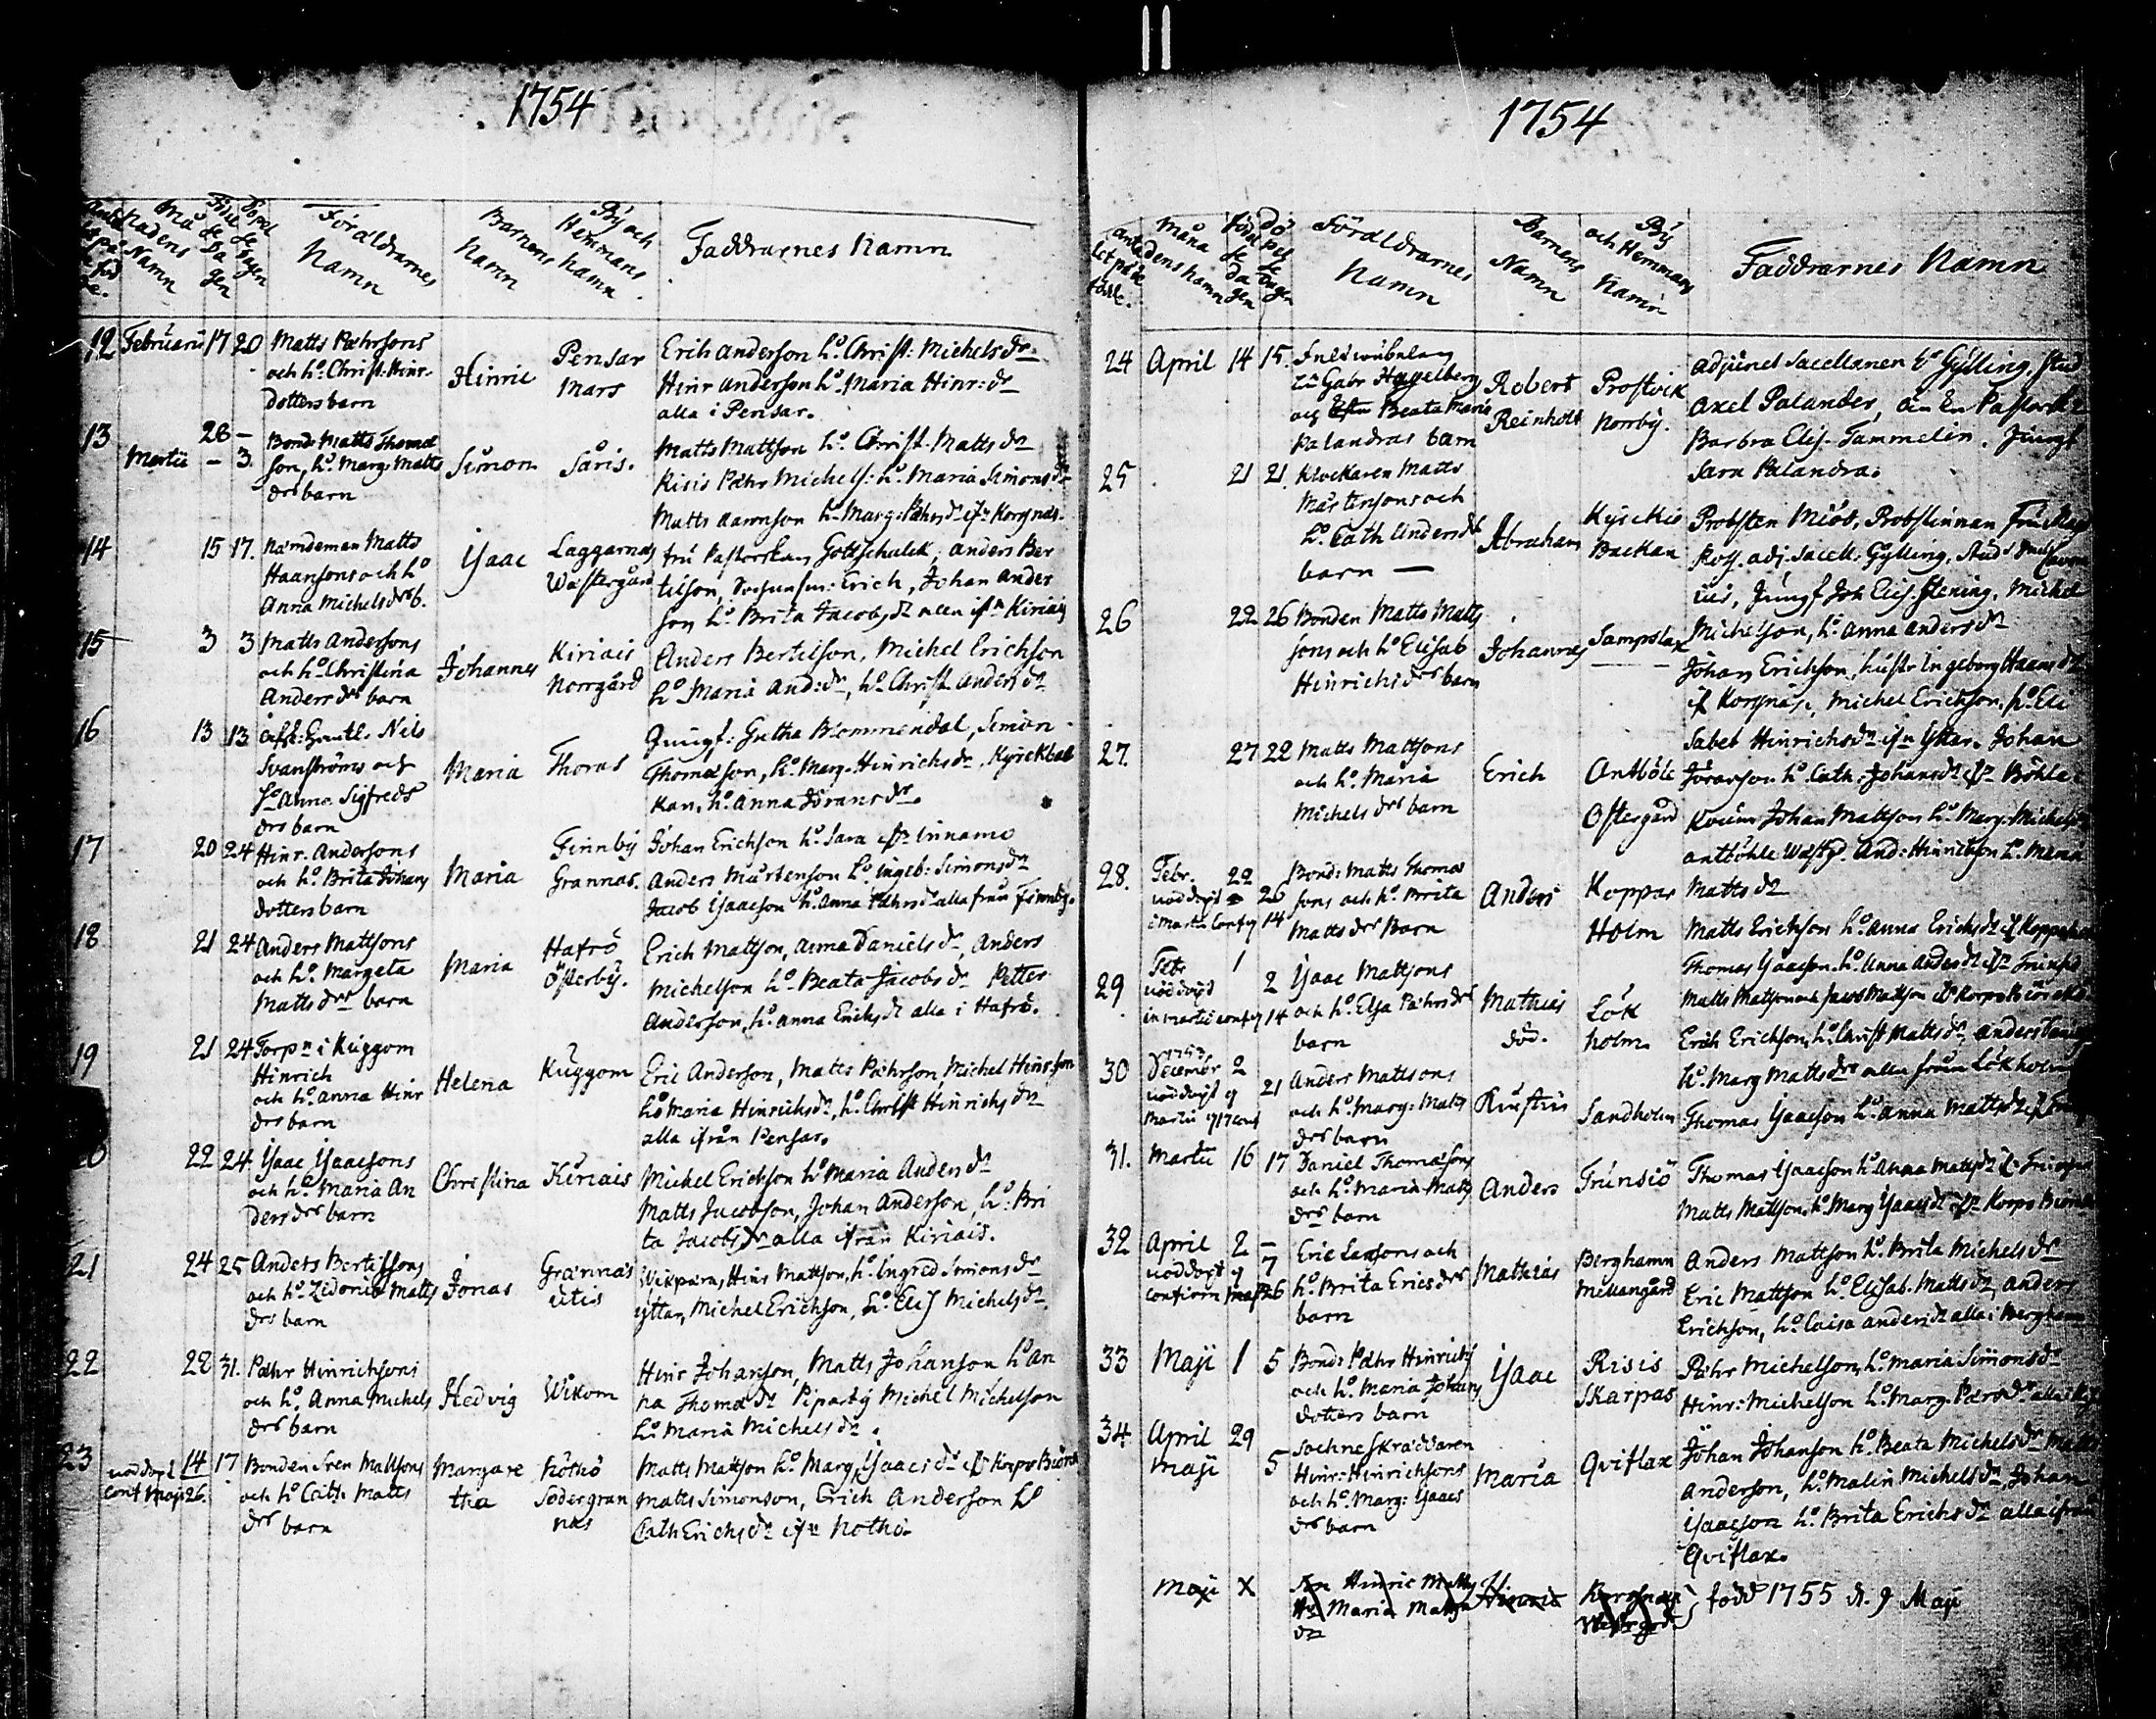 1754
Månadens Namn
Födelse Dagen
Föräldrarnes Namn
Barnens Namn
By och Hemmans namn.
Faddrarnes Namn
12 Februarii 17 20
Matts Pæhrsons
och ho. Christ: Hinr.
dotters barn
Hinric
Pensar
Mars
Erich Anderson ho. Christ: Michels dr.
Hinr Anderson ho. Maria Hinr: dr
alla i Pensar.
13 28 –
Martii – 3.
Bond. Matts Thomæ
son, ho. Marg: Matts
drs barn
Simon
Såris.
Matts Mattson ho. Christ. Matts dr
Risis Pæhr Michels: ho. Maria Simons dr
Matts Aaronson ho Marg: Pæhrs dr ifn Korgnäs.
14 15 17.
Næmdeman Matts
Haansons och ho
Anna Michels drs b.
Isaac
Laggarnäs
Wästergård
fru Pastorskan Gottschalck, Anders Ber
telson, Erich, Johan Anders
son ho. Brita Jacobs dr allа ifn Kiriais
15 3 3
Matts Andersons
och ho. Christina
Anders drs barn
Johannes
Kiriais
Norrgård
Anders Bertelson, Michel Erichson
ho Maria And: dr, ho. Christ. Anders dr
16 13 13
Nils
Svanströms och
ho Anna Sigfreds
drs barn
Maria
Thoras
Jungf: Gretha Blommendal, Simon
Thomæson, ho. Marg. Hinrichs dr, Kyrckbac
kan, ho. Anna Jörans dr.
17 20 24
Hinr. Andersons
och ho. Brita Johans
dotters barn
Maria
Finnby
Grannas.
Johan Erichson ho. Sara ifn Innamo
Anders Mårtenson ho. Ingeb: Simons dr
Jacob Isaacson ho. Anna Pæhrs dr alla från Finnby.
18 21 24
Anders Mattsons
och ho. Margeta
Matts drs barn
Maria
Hafrö
Österby.
Erich Mattson, Anna Daniels dr, Anders
Michelson ho. Beata Jacobs dr Petter
Anderson, ho. Anna Erichs dr alla i Hafrö.
19 21 24
Torpn i Kuggom
Hinrich
och ho. Anna Hinr
drs barn
Helena
Kuggom
Eric Anderson, Matts Pæhrson, Michel Hinr:son
ho Maria Hinrichs dr, ho. Christ Hinrichs dr
alla ifrån Pensar.
22 24.
Isaac Isaacsons
och ho. Maria An
ders drs barn
Christina
Kiriais
Michel Erichson ho Maria Anders dr
Matts Jacobson, Johan Anderson, ho. Bri
ta Jacobs dr alla ifrån Kiriais.
21 24 25
Anders Bertilsons
och ho. Zidonia Matts
drs barn
Jonas
Grannäs
utis
Hinr Mattson, ho. Ingred Simons dr
yttar, Michel Erichson, ho. Elis Michels dr.
22 28 31.
Pæhr Hinrichsons
och ho. Anna Michels
drs barn
Hedvig
Wikom
Hinr Johanson, Matts Johanson ho An
na Thomæ dr Piparby Michel Michelson
ho Maria Michels dr.
23 nöddopt 14 17
conf Maji 26.
Bonden Sven Mattsons
och ho Cath. Matts
drs barn
Margare
tha
Nöthö
Södergran
nas
Matts Mattson ho Marg. Isaacs dr ifn Korpo Biörck
Matts Simonson, Erich Anderson ho
Cath Erichs dr ifn Nöthö.
1754
Månadens namn
Födelse Dagen
Föräldrarnes Namn
Barnens Namn
By och Hemmans Namn
Faddrarnes Namn
24 April 14 15.
Gabr Hagelberg
och Beata Maria
Palandras barn
Robert
Reinhold
Prostvik
Norrby.
Adjunct Sacellanen Gylling, Stud
Axel Palander,
Barbra Elis. Tammelin. Jungf
Sara Palandra.
25 21 21.
Klockaren Matts
Mårtensons och
ho. Cath Anders drs
barn –
Abraham
Kyrckio
Backan
Probsten Miöd, Probstinnan
adj. Sacell. Gylling, Stud
ius, Jungf Elis. Stening. Michel
Michelson, ho. Anna Anders dr
26 22 26
Bonden Matts Matts
sons och ho Elisab
Hinrichs drs barn
Johannes
Sampslax
Johan Erichson, hustr Ingeborg Haans dr
if Korgnäs, Michel Erichson, ho. Eli
sabet Hinrichs dr ifn Yttar. Johan
27. 27 22
Matts Mattsons
och ho. Maria
Michels drs barn
Erich
Antböle
Östergård
Jöranson ho. Cath. Johans dr ifn Böhle.
Johan Mattson ho. Marg: Michels dr
Antböhle Wästg. And: Hinrichson ho. Maria
Matts dr
28. Febr. 22
nöddopt 26
i Martii Conf 14
Bond: Matts Thomæ
sons och ho. Brita
Matts drs Barn
Anders
Koppar
Holm
Matts Erichson ho. Anna Erichs dr
Thomas Isaacson ho. Anna Anders dr
29 Febr 1
nöddopt 2
in Martii conf 14
Isaac Mattsons
och ho. Elsa Pæhrs drs
barn
Mathias
död.
Lök
holm.
Matts Mattson och Jacob Mattson
Erich Erichson, ho. Christ Matts dr, Anders
ho. Marg Matts dr alla från Lökholm
30 1753
Decembr 2
nöddopt 21
Martii 17 conf
Anders Mattsons
och ho. Marg: Matts
drs barn
Sandholm
Thomas Isaacson ho. Anna Matts dr
31. Martii 16 17
Daniel Thomæsons
och ho. Maria Matts
drs barn
Anders
Trunsiö
Thomas Isaacson ho. Anna Matts dr
Matts Mattson, ho. Marg Isaacs dr ifn Korpo
32 April 2 –
nöddopt 7
confirm Maji 26
Eric Larsons och
ho. Brita Erics drs
barn
Mathias
Berghamn
Mellangård
Anders Mattson ho. Brita Michels dr
Eric Mattson ho. Elisab. Matts dr, Anders
Erichson, ho. Caisa Anders dr alla i Berghamn
33 Maji 1 5
Bond: Pæhr Hinrichs
och ho. Maria Johans
dotters barn
Isaac
Risis
Skarpas
Pæhr Michelson, ho. Maria Simons dr
Hinr: Michelson ho. Marg. Pæhrs dr alla
34. April 29
Maji 5
Sochne Skräddaren
Hinr: Hinrichsons
och ho. Marg: Isaacs
drs barn
Maria
Qviflax
Johan Johanson ho. Beata Michels dr Matts
Anderson, ho. Malin Michels dr, Johan
Isaacson ho. Brita Erichs dr alla ifrån
Qviflax.
Maji X
Hinric Matts
Ho Maria Matts
dr
Hinric
Korgnäs
Westergård
född 1755 d. 9 Maji